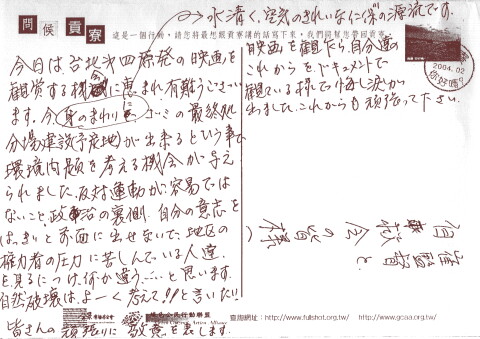 問候貢寮
這是一個行動，請您將最想跟貢寮講的話寫下來，我們同幫您帶回貢寮。
→水清く、空気のきれいなに保の源流です。
今日は、台北第四原発の映画を
観賞する機会に恵まれ有難うござい
ます。今、身のまわりにゴミの最終処
分場建設（予定地）が出来るという事で
環境内題を考える機会が与え
られました。反対運動が容易では
ないこと、政治の裏側、自分の意志を
はっきりと前面に出せないで、地区の
権力者の圧力に苦しんでいる人達
を見るにつけ、何か違う…と思います。
自然破壊は、よーく考えて!!と言いたい!!
皆さんの頑張りに敬意を表します。
映画を観たら、自分達の
これからをドキュメントで
観ている様で悔し涙が
出ました。これからも頑張って下さい。
2004.02
你好嗎?
崔監督と
自救会の皆様へ
綠色公民行動聯盟
查詢網址：http://www.fullshot.org.tw/ http://www.gcaa.org.tw/